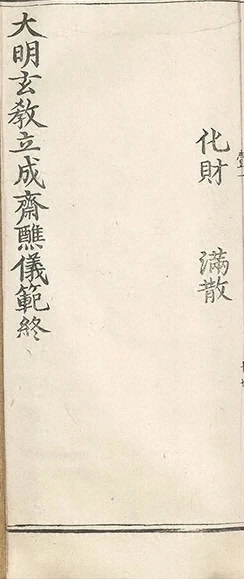 化財　滿散
大明玄教立成齋醮儀範終